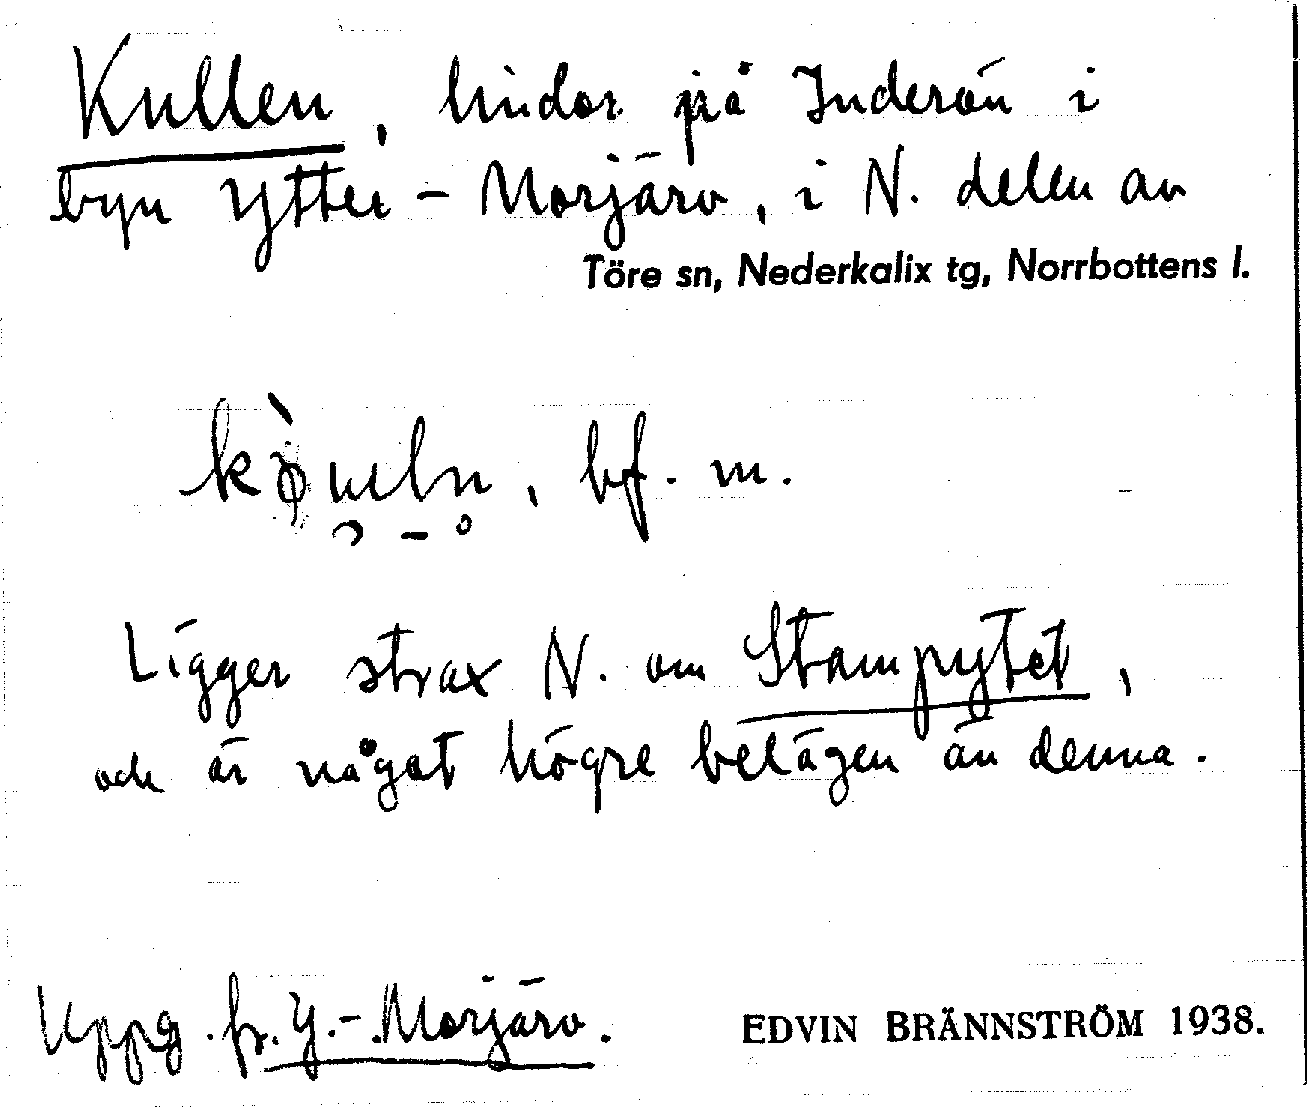 Kullen, lindor på Inderön i
byn Ytter-Morjärv, i N. delen av
Töre sn, Nederkalix tg, Norrbottens l.
bf. m.
Ligger strax N. om Stampytet,
och är något högre belägen än denna.
Uppg. fr. Y.-Morjärv.
EDVIN BRÄNNSTRÖM 1938.